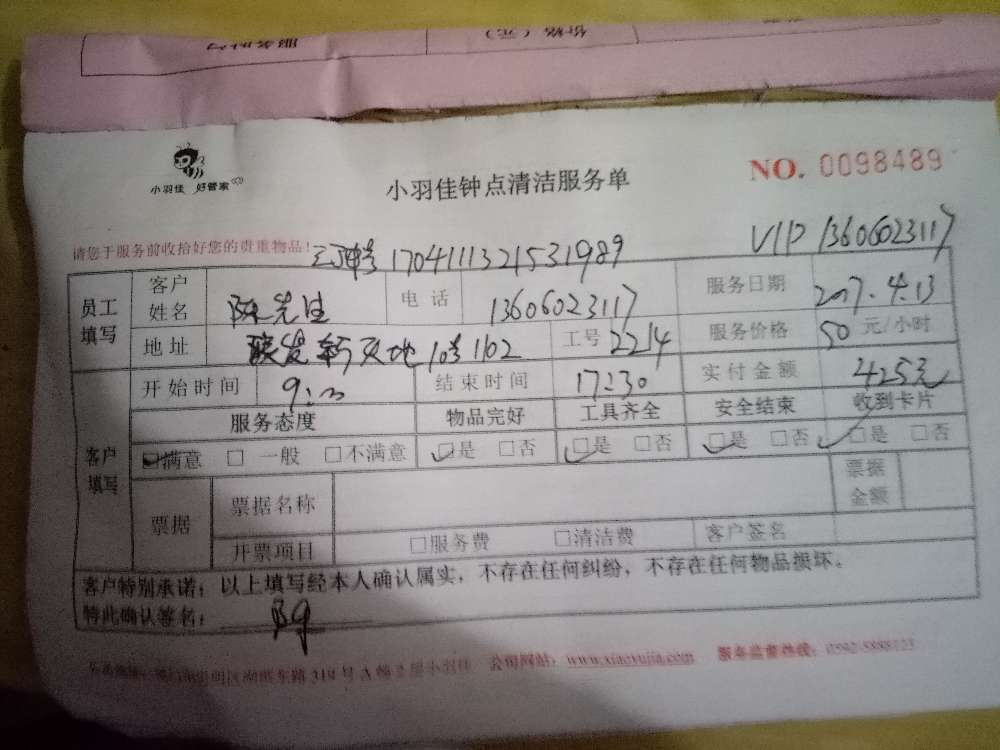 价格（元）
小羽佳 好管家
小羽佳钟点清洁服务单
NO. 0098489
请您于服务前收拾好您的贵重物品！
1704111321531989
VIP 13606023117
员工填写
客户姓名 陈先生 电话 13606023117 服务日期 2017.4.13
地址 联发新天地10号1102 工号 2214 服务价格 50 元/小时
开始时间 9: 结束时间 17:30 实付金额 425元
客户填写
服务态度 物品完好 工具齐全 安全结束 收到卡片
☑满意 □一般 □不满意 ☑是 □否 ☑是 □否 ☑是 □否 ☑是 □否
票据 票据名称 票据金额
开票项目 □服务费 □清洁费 客户签名
客户特别承诺：以上填写经本人确认属实，不存在任何纠纷，不存在任何物品损坏。
特此确认签名：
319号A幢2层小羽佳 公司网站：www.xiaoyujia.com 服务监督热线：